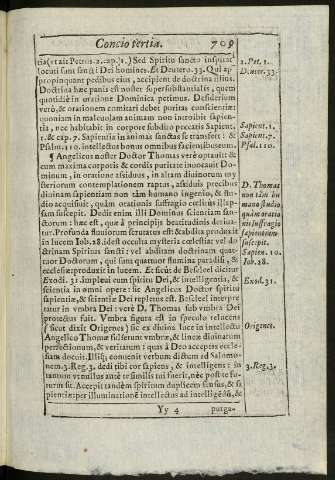 Concio tertia. 709
tia (vt ait Petrus 2. cap. 1.) Sed Spiritu sancto inspirati
locuti sunt sancti Dei homines. Et Deutero. 33. Qui ap
propinquant pedibus eius, accipient de doctrina illius.
Doctrina hæc panis est noster supersubstantialis, quem
quotidiè in oratione Dominica petimus. Desiderium
verò, & orationem comitari debet puritas conscientiæ:
quoniam in maleuolam animam non introibit sapientia,
nec habitabit in corpore subdito peccatis Sapient.
1. & cap. 7. Sapientia in animas sanctas se transfert: &
Psalm. 110. intellectus bonus omnibus facientibus eum.
¶ Angelicus noster Doctor Thomas verè optauit & cum
maxima corporis & cordis puritate inuocauit Dominum,
in oratione assiduus, in altam diuinorum mysteriorum
contemplationem raptus, assiduis precibus
diuinam sapientiam non tàm humano ingenio, & studio
acquisiuit, quàm orationis suffragio cœlitus illapsam
suscepit. Dedit enim illi Dominus scientiam sanctorum:
hæc est, quæ à principijs beatitudinis deriuatur.
Profunda fluuiorum scrutatus est & abdita produxit
in lucem Iob. 28. idest occulta mysteria cœlestia: vel doctrinam
Spiritus sancti: vel abditam doctrinam quatuor
Doctorum, qui sunt quatuor flumina paradisi, &
ecclesiæ produxit in lucem. Et sicut de Beseleel dicitur
Exodi. 31. Impleui eum spiritu Dei, & intelligentia, &
scientia in omni opere: sic Angelicus Doctor spiritu
sapientiæ, & scientiæ Dei repletus est. Beseleel interpretatur
in vmbra Dei: verè D. Thomas sub vmbra Dei
protectus fuit. Vmbra figura est in speculo relucens
(sicut dixit Origenes) sic ex diuina luce in intellectu
Angelico Thomæ fulserunt vmbræ, & lineæ diuinarum
perfectionum, & veritatum: quas à Deo acceptas ecclesiam
docuit. Illiq; conuenit verbum dictum ad Salomonem.
3. Reg. 3. dedi tibi cor sapiens, & intelligens: in
tantum vt nullus ante te similis tui fuerit, nec post te futurus
sit. Accepit tandem spiritum duplicem sensus, & sapientiæ:
per illuminationē intellectus ad intelligēdū, &
Yy 4 purga-
2. Pet. 1.
Deuter. 33.
Sapient. 1.
Sapient. 7.
Psal. 110.
D. Thomas
non tàm humano
studio,
quàm orationis
suffragio
sapientiam
suscepit.
Sapien. 10.
Iob. 28.
Exod. 31.
Origenes.
3. Reg. 3.